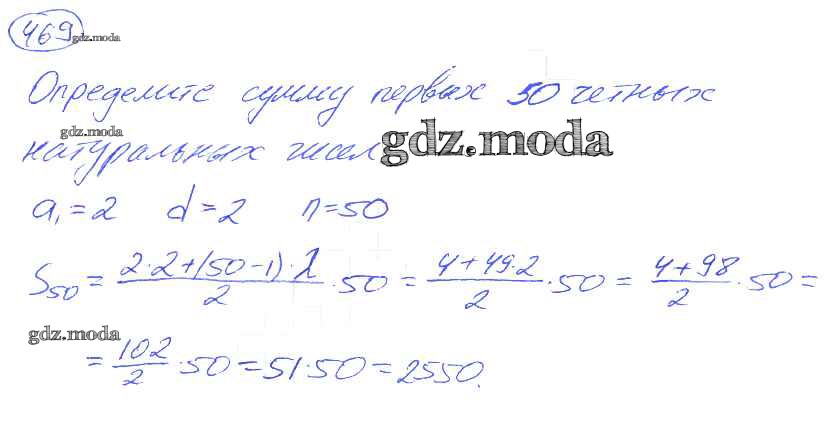 469 gdz.moda
Определите сумму первых 50 четных
gdz.moda
натуральных чисел gdz.moda
a₁ = 2 d = 2 n = 50
S₅₀ = (2·2+(50-1)·2)/2 · 50 = (4+49·2)/2 · 50 = (4+98)/2 · 50 =
gdz.moda
= 102/2 · 50 = 51·50 = 2550.